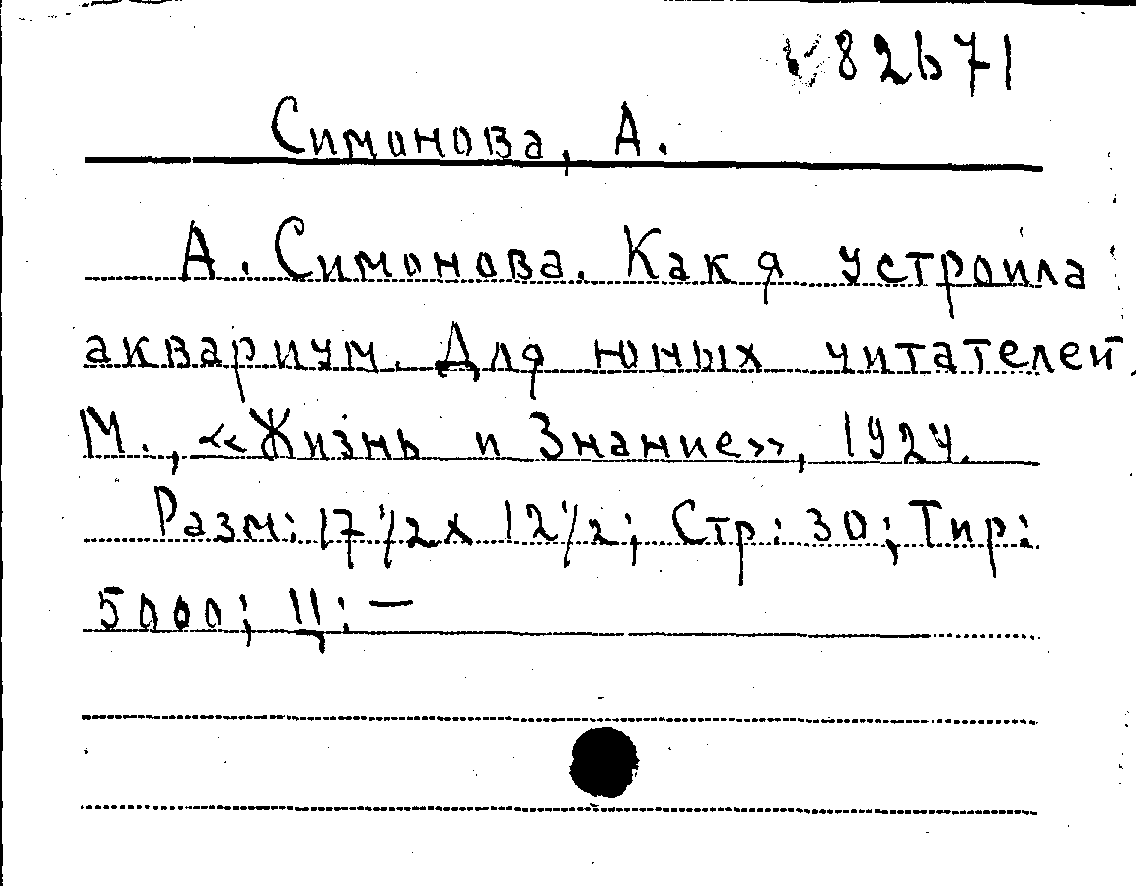 82671
Симонова, А.
А. Симонова. Как я устроила
аквариум. Для юных читателей.
М., «Жизнь и Знание», 1924.
Разм: 17 1/2 х 12 1/2; Стр: 30; Тир:
5000; Ц: —